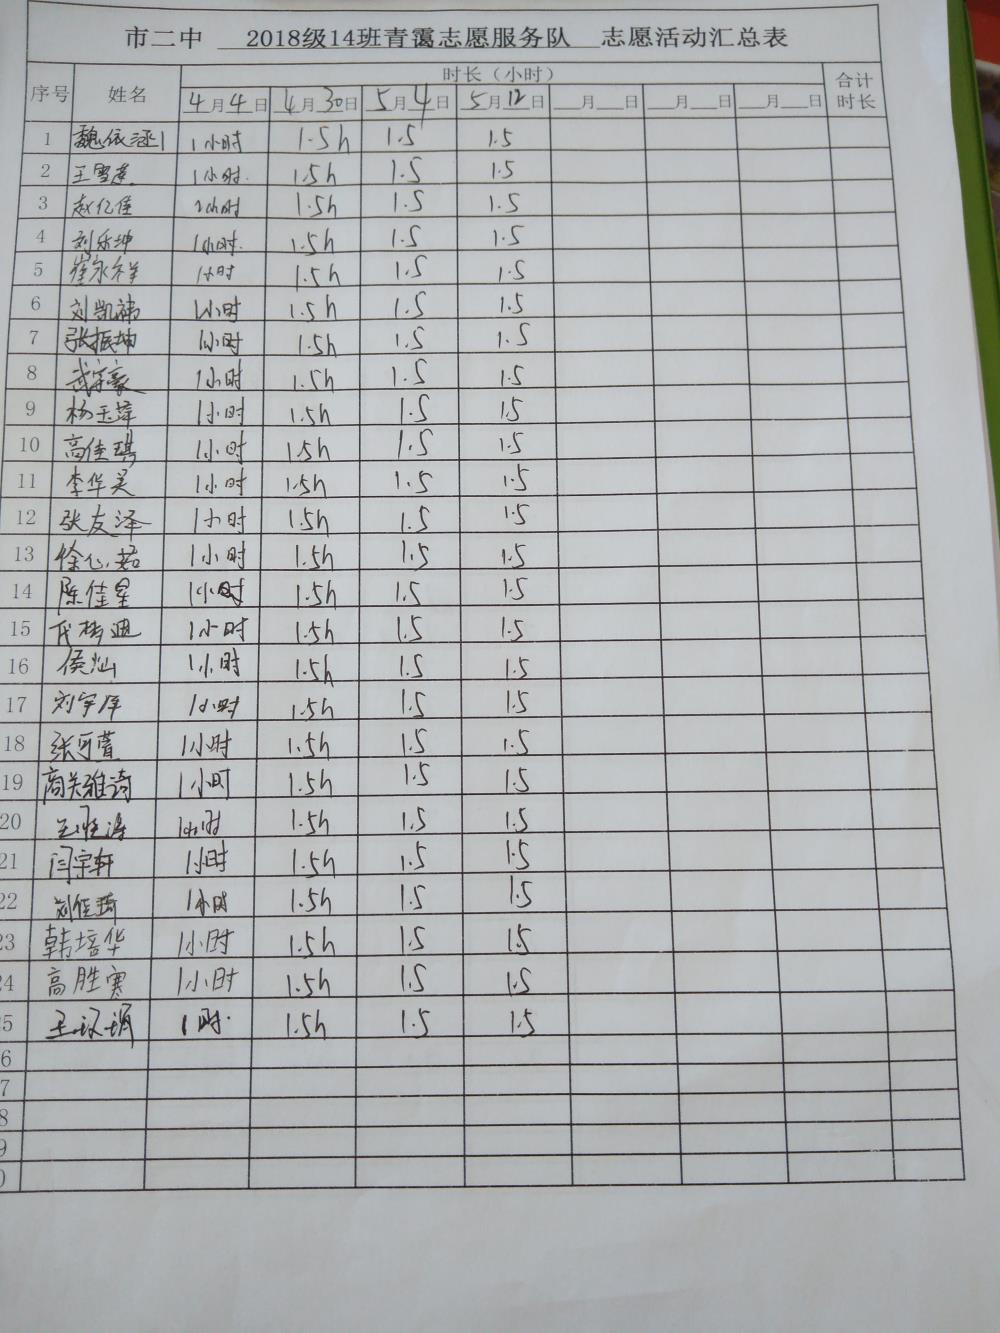 市二中 2018级14班青霭志愿服务队 志愿活动汇总表
序号 姓名 时长（小时） 合计时长
4月4日 4月30日 5月4日 5月12日 __月__日 __月__日 __月__日
1 魏依涵 1小时 1.5h 1.5 1.5
2 王雪莲 1小时. 1.5h 1.5 1.5
3 赵亿佳 1小时 1.5h 1.5 1.5
4 刘乐坤 1小时. 1.5h 1.5 1.5
5 崔永祥 1小时 1.5h 1.5 1.5
6 刘凯祎 1小时 1.5h 1.5 1.5
7 张振坤 1小时 1.5h 1.5 1.5
8 武宇豪 1小时 1.5h 1.5 1.5
9 杨玉萍 1小时 1.5h 1.5 1.5
10 高佳琪 1小时 1.5h 1.5 1.5
11 李华昊 1小时 1.5h 1.5 1.5
12 张友泽 1小时 1.5h 1.5 1.5
13 徐心茹 1小时 1.5h 1.5 1.5
14 陈佳星 1小时 1.5h 1.5 1.5
15 1小时 1.5h 1.5 1.5
16 侯灿 1小时 1.5h 1.5 1.5
17 刘宇 1小时 1.5h 1.5 1.5
18 张可萱 1小时 1.5h 1.5 1.5
19 高关雅诗 1小时 1.5h 1.5 1.5
20 1小时 1.5h 1.5 1.5
21 闫宗轩 1小时 1.5h 1.5 1.5
22 刘佳琦 1小时 1.5h 1.5 1.5
23 韩培华 1小时 1.5h 1.5 1.5
24 高胜寒 1小时 1.5h 1.5 1.5
5 王 1时. 1.5h 1.5 1.5
6
7
8
9
0